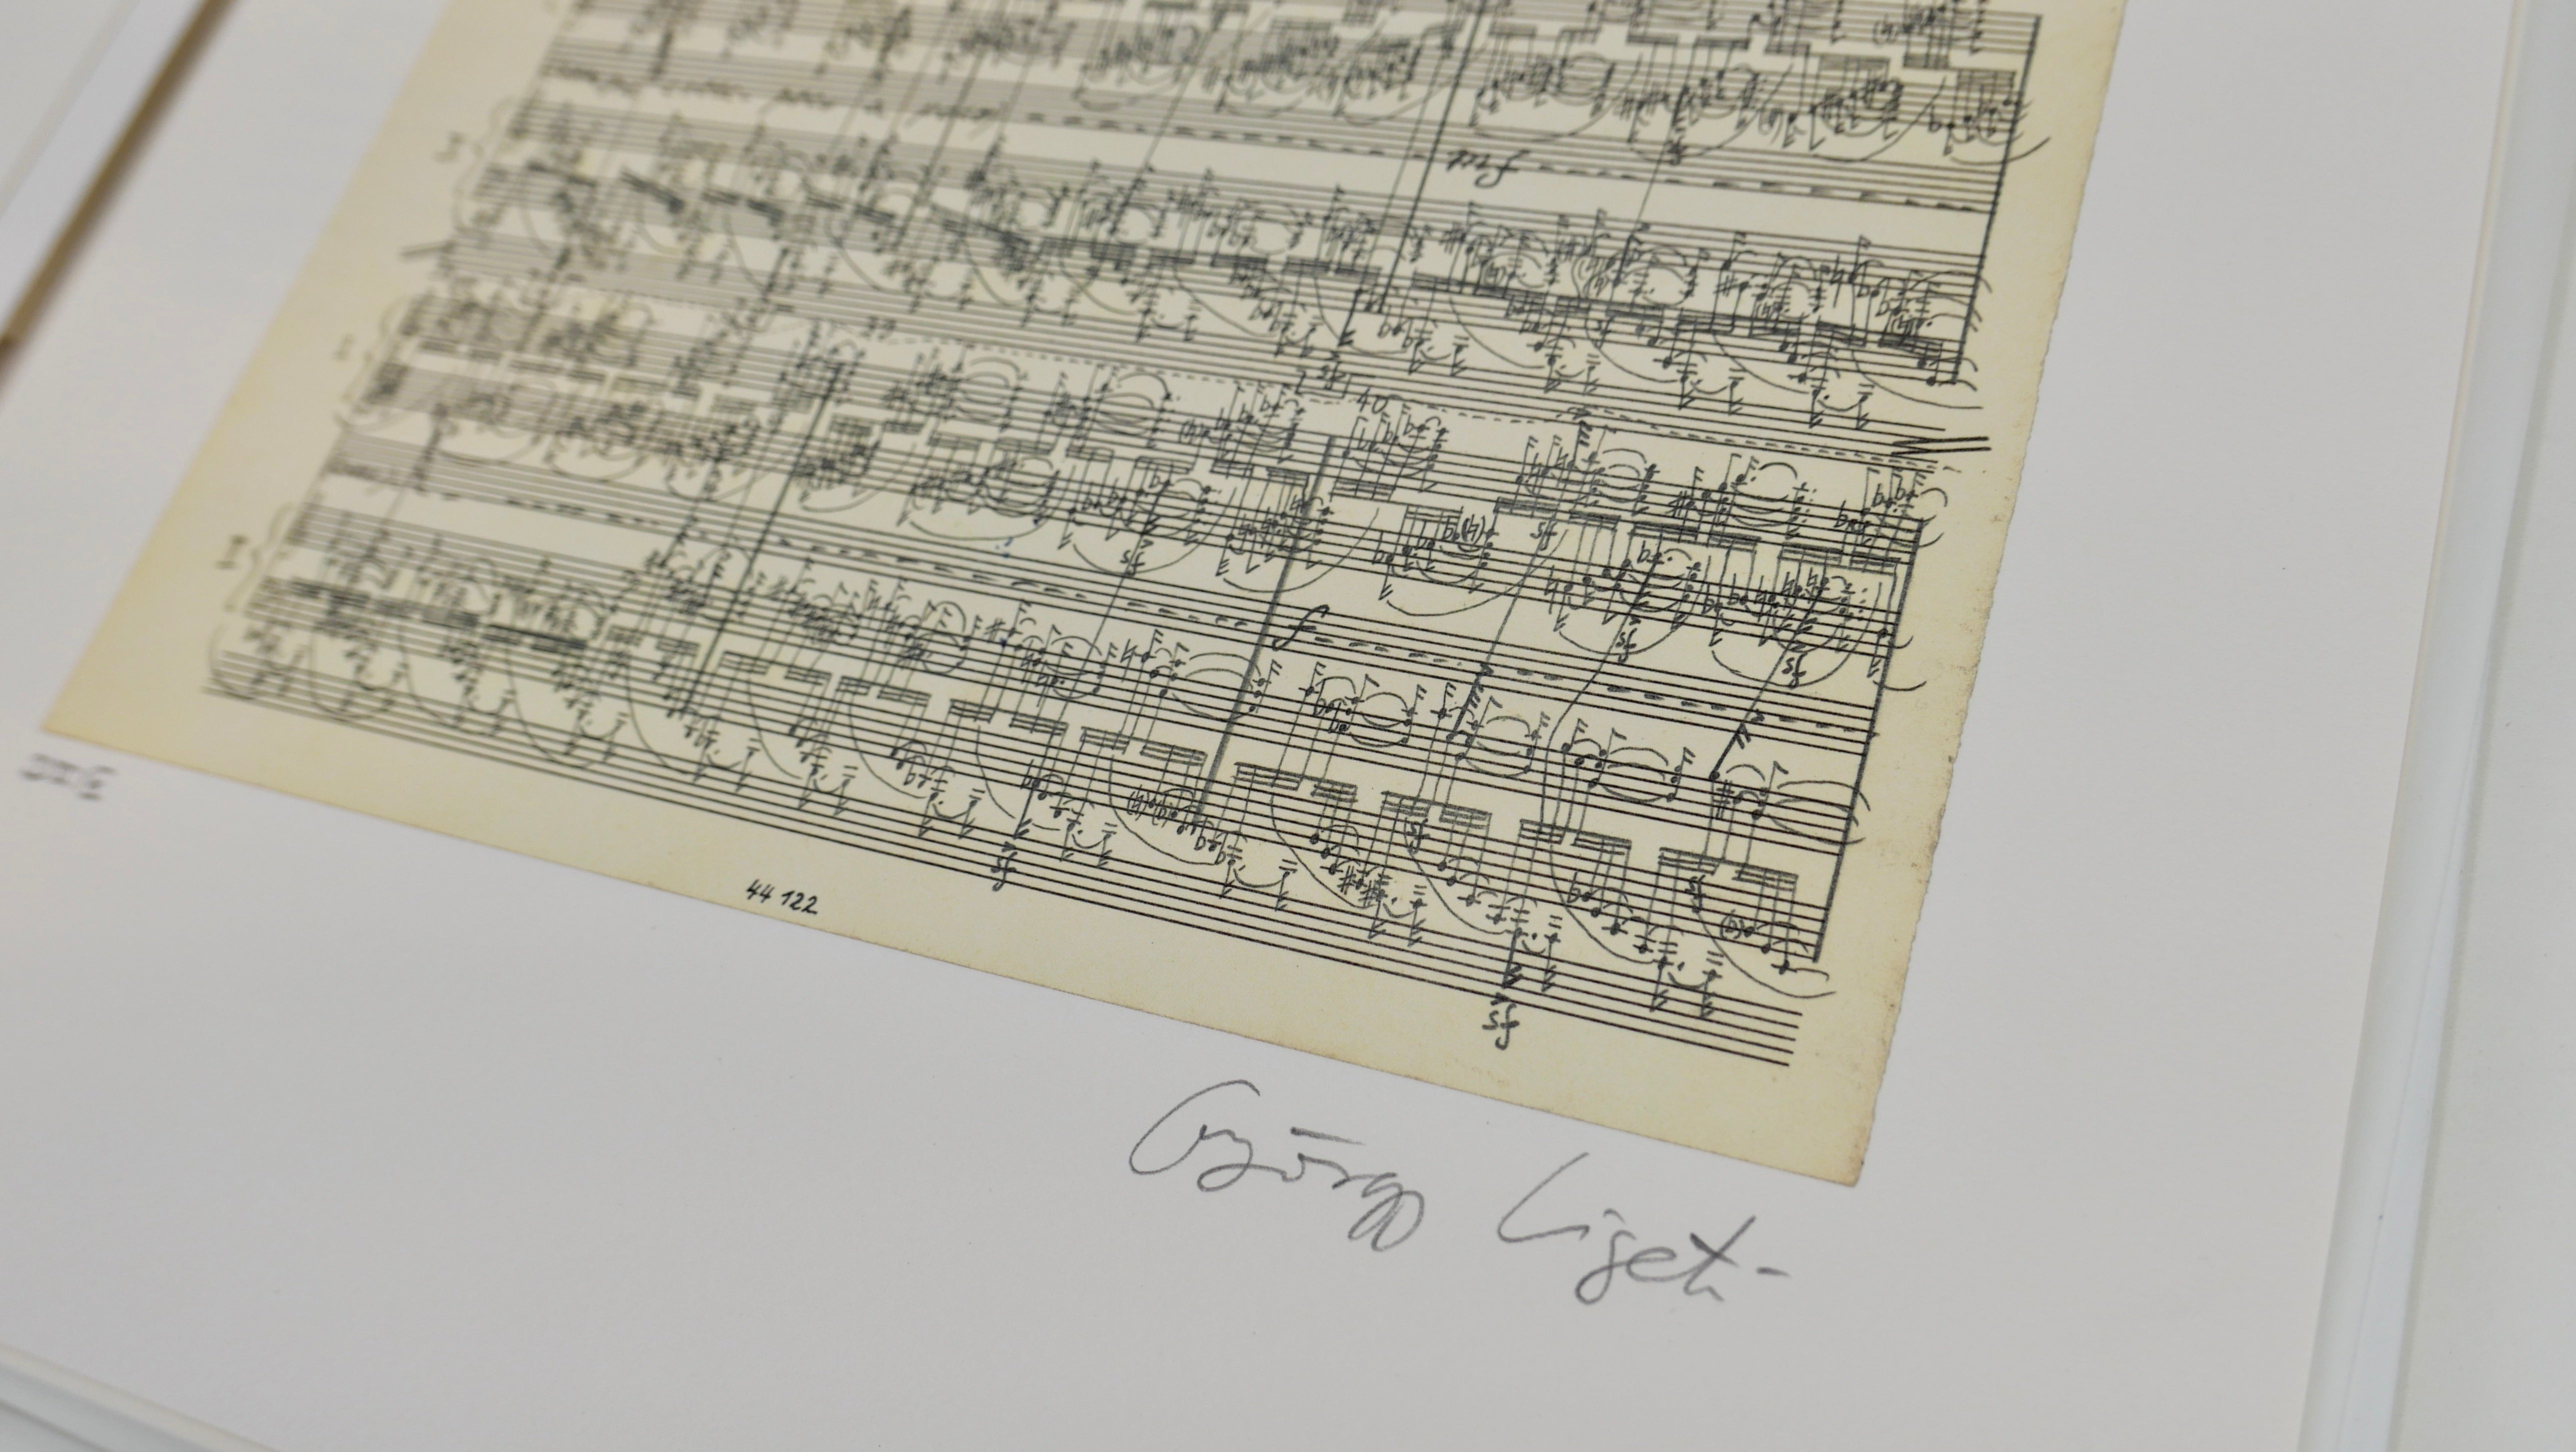 mf
40
sf
sf
sf
sf
f
II
sf
sf
sf
44 122
sf
György Ligeti